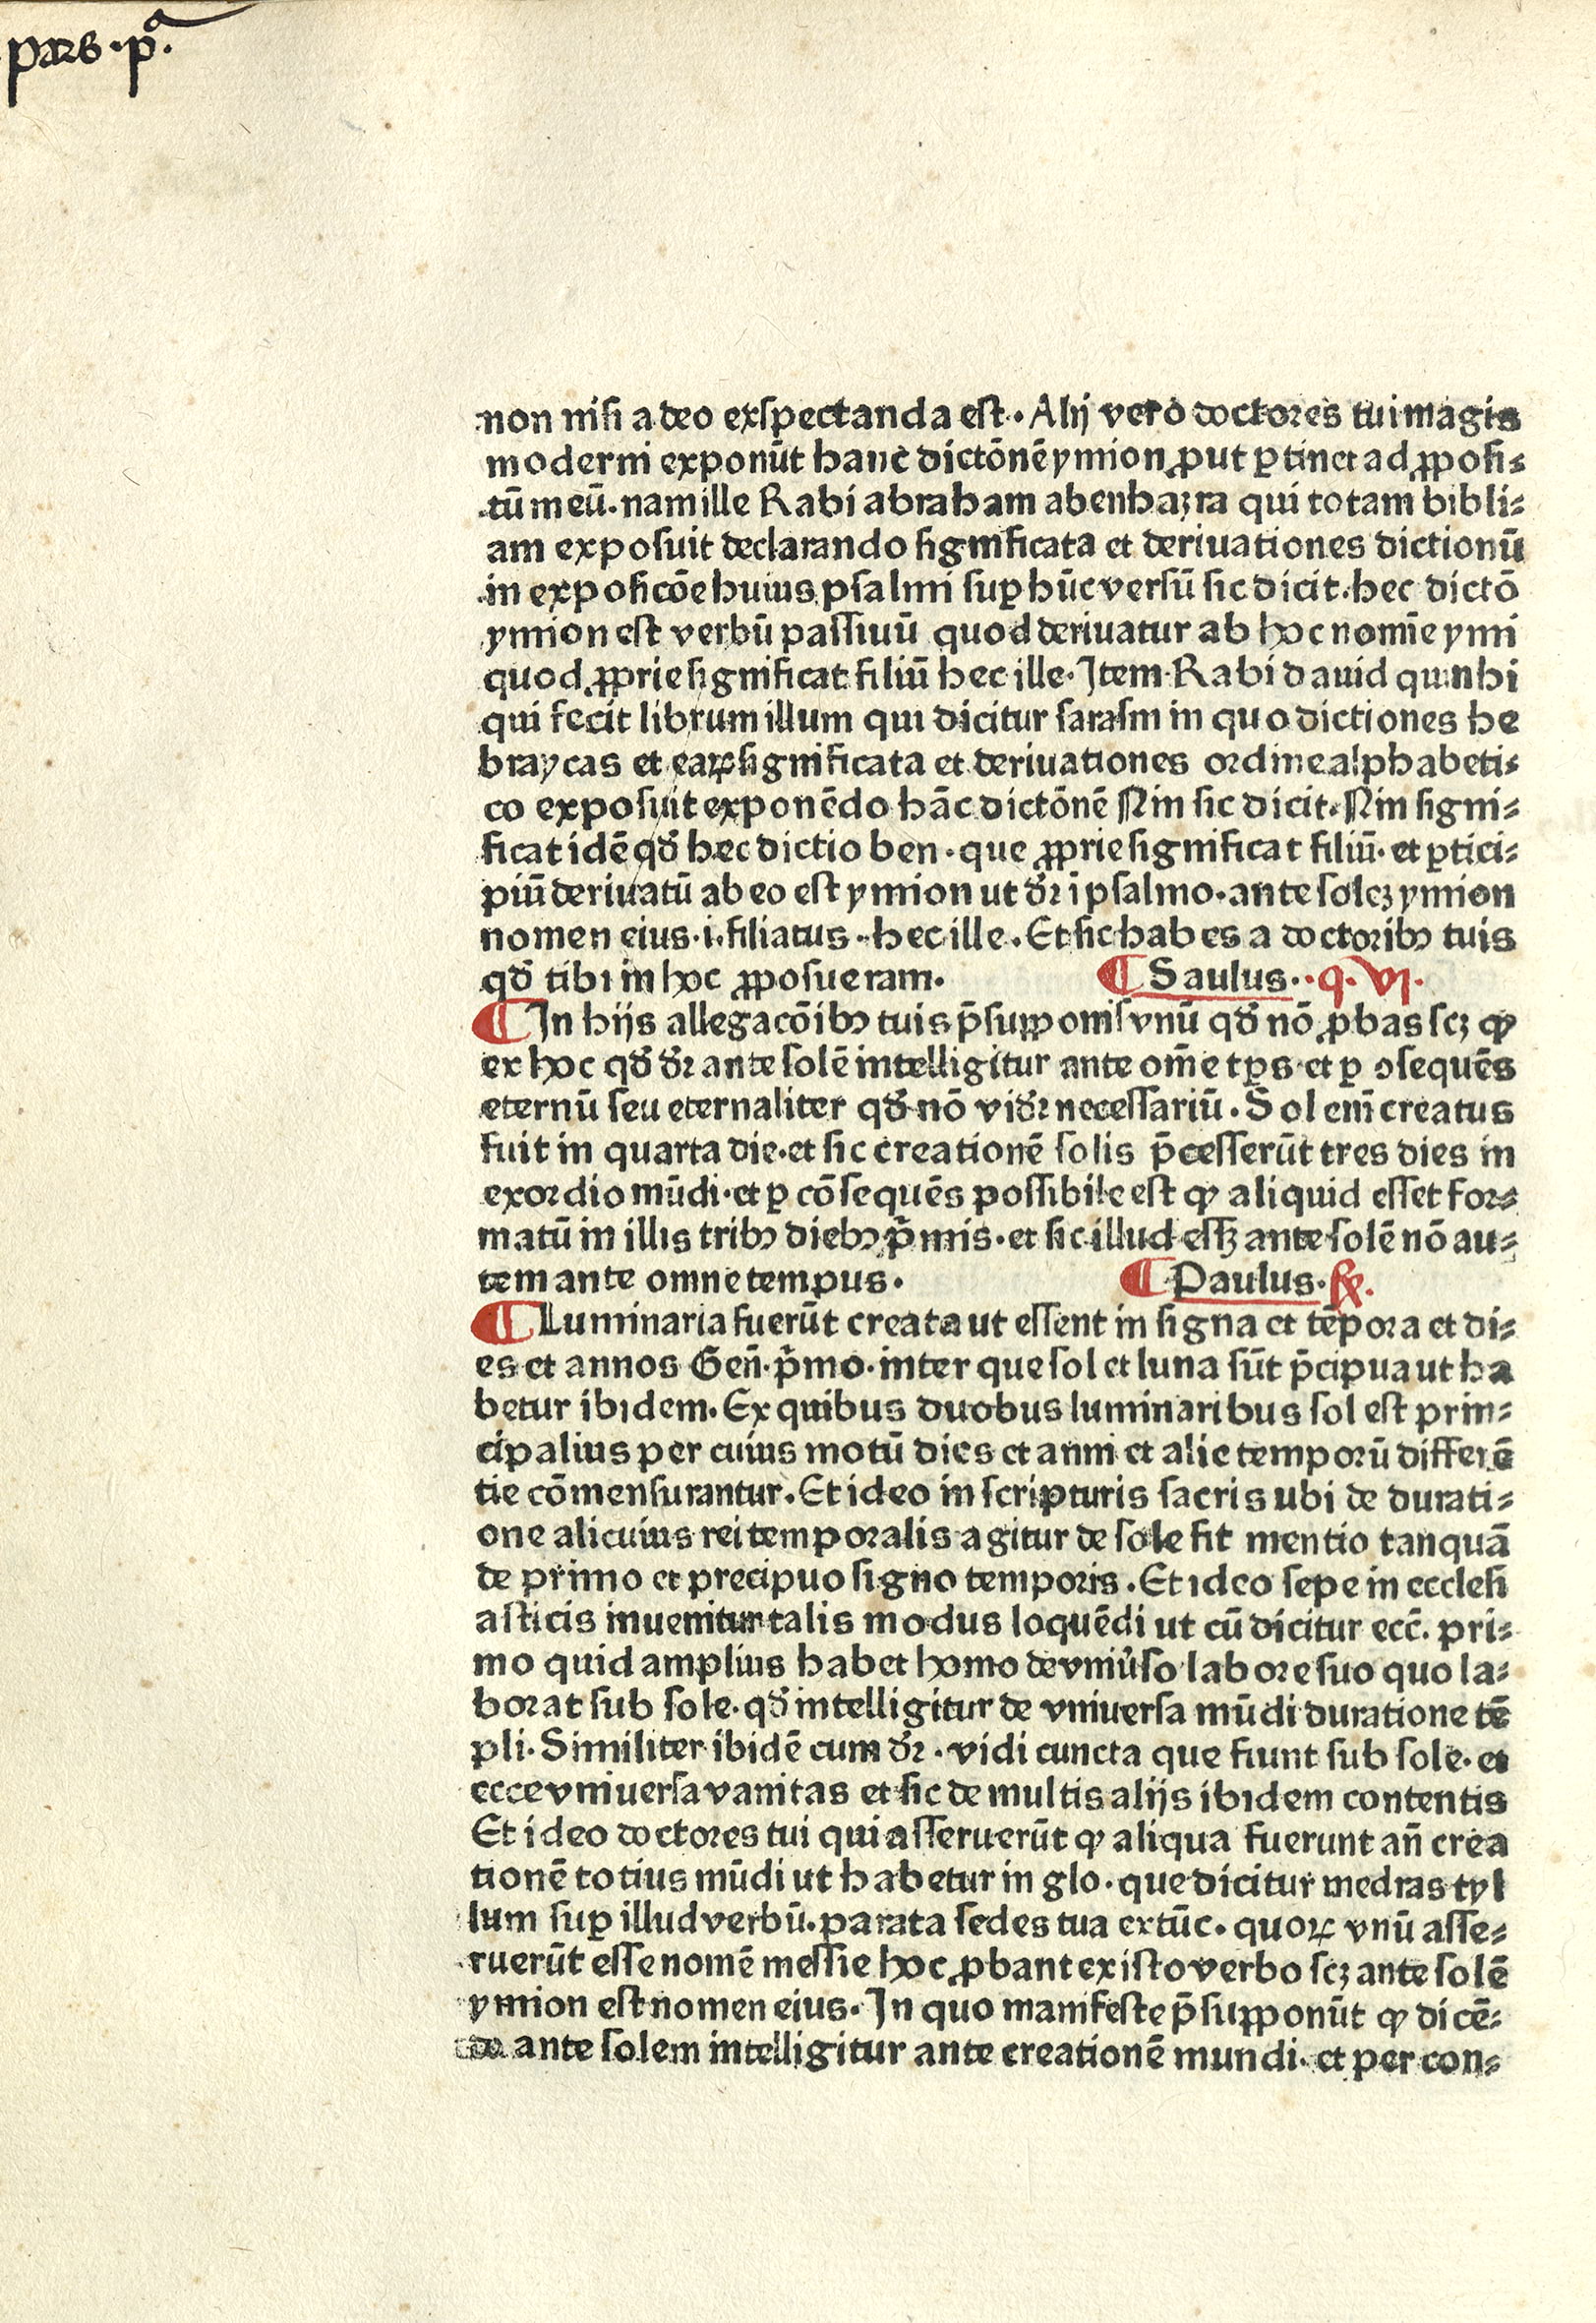 pars · pª.
non nisi a deo exspectanda est. Alij vero doctores tui magis
moderni exponūt hanc dictōnē ymion ꝓut ꝑtinet ad ꝓposi⸗
tū meū. nam ille Rabi abraham abenhazra qui totam bibli⸗
am exposuit declarando significata et deriuationes dictionū
in exposicōe huius psalmi suꝑ hūc versū sic dicit. hec dictō
ymion est verbū passiuū quod deriuatur ab hoc nomīe ymi
quod ꝓprie significat filiū hec ille. Item Rabi dauid quinhi
qui fecit librum illum qui dicitur sarasm in quo dictiones he
braycas et eaꝝ significata et deriuationes ordine alphabeti⸗
co exposuit exponēdo hāc dictōnē Nin sic dicit. Nin signi⸗
ficat idē qđ hec dictio ben. que ꝓprie significat filiū. et ꝑtici⸗
piū deriuatū ab eo est ymion ut đr ī psalmo. ante soleꝫ ymion
nomen eius .i. filiatus. hec ille. Et sic habes a doctoribꝰ tuis
qđ tibi in hoc ꝓposueram. ¶ Saulus. q. vi.
¶ In hijs allegacōibꝰ tuis p̄supponis vnū qđ nō ꝓbas scꝫ ꝙ
ex hoc qđ đr ante solē intelligitur ante om̄e tꝑs. et ꝑ ɔsequēs
eternū seu eternaliter qđ nō viđr necessariū. Sol enī creatus
fuit in quarta die. et sic creationē solis p̄cesserūt tres dies in
exordio mūdi. et ꝑ cōsequēs possibile est ꝙ aliquid esset for⸗
matū in illis tribꝰ diebꝰ p̄mis. et sic illud essꝫ ante solē nō au⸗
tem ante omne tempus. ¶ Paulus. ꝶ.
¶ Luminaria fuerūt creata ut essent in signa et tēpora et di⸗
es et annos Geñ. p̄mo. inter que sol et luna sūt p̄cipua ut ha
betur ibidem. Ex quibus duobus luminaribus sol est prin⸗
cipalius per cuius motū dies et anni et alie temporū differē
tie cōmensurantur. Et ideo in scripturis sacris ubi de durati⸗
one alicuius rei temporalis agitur de sole fit mentio tanquā
de primo et precipuo signo temporis. Et ideo sepe in ecclesi
asticis inuenitur talis modus loquēdi ut cū dicitur ecc̄. pri⸗
mo quid amplius habet homo de vniu̓so labore suo quo la⸗
borat sub sole. qđ intelligitur de vniuersa mūdi duratione tē
pli. Similiter ibidē cum đr. vidi cuncta que fiunt sub sole. et
ecce vniuersa vanitas et sic de multis alijs ibidem contentis
Et ideo doctores tui qui asseruerūt ꝙ aliqua fuerunt an̄ crea
tionē totius mūdi ut habetur in glo. que dicitur medras tyl
lum suꝑ illud verbū. parata sedes tua ex tūc. quoꝝ vnū asse⸗
ruerūt esse nomē messie hoc ꝓbant ex isto verbo scꝫ ante solē
ymion est nomen eius. In quo manifeste p̄supponūt ꝙ dicē⸗
do ante solem intelligitur ante creationē mundi. et per con⸗